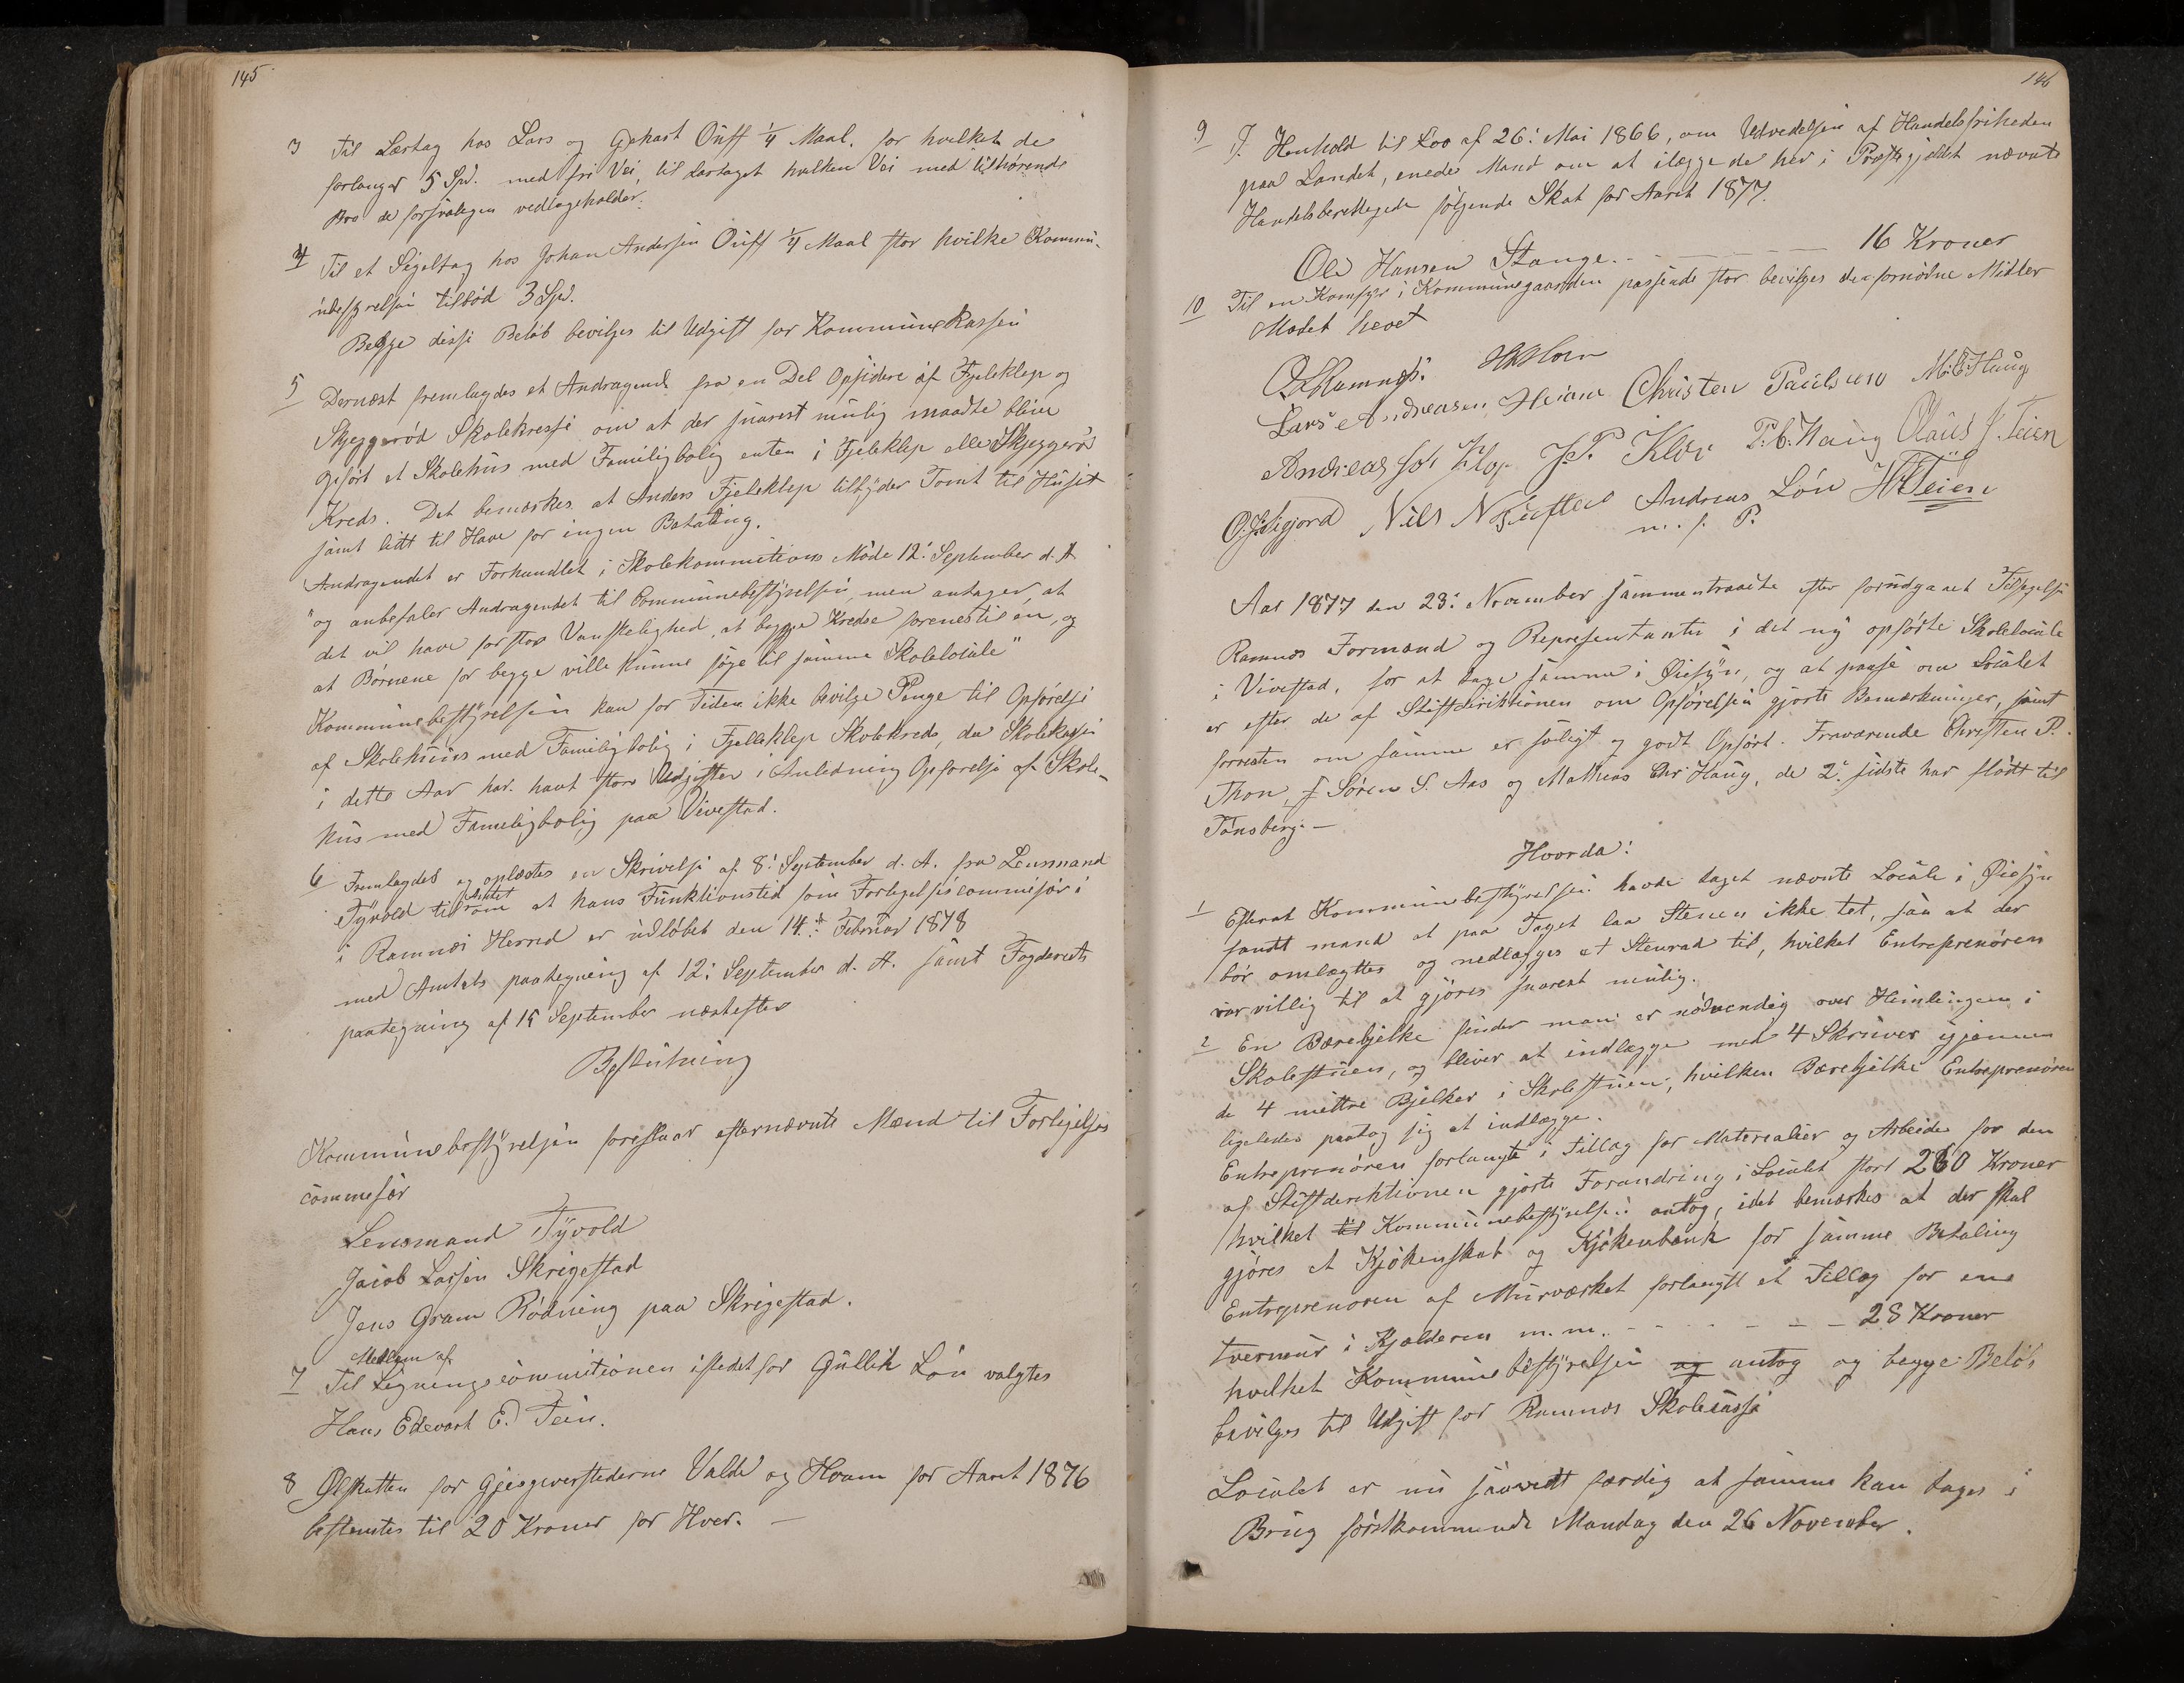 145
3 Til Lertag hos Lars og Gjehart Ouff ¼ Maal, for hvilket de
forlanger 5 Spd. med fri Vei, til Lertaget hvilken Vei med tilhørende
Bro de forsvaligen vedligeholder.
4 Til et Sigeltag hos Johan Andersen Ouff ¼ Maal stor hvilke Kommu-
nebestyrelsen tilbød 3 Spd.
Begge disse Beløb bevilges til Udgift for Kommunekassen
5 Dernæst fremlagdes et Andragende fra en Del Opsidere af Fjeleklep og
Skjeggerød Skolekresse om at der snarest mulig maatte blive
opført et Skolehus med Familiebolig enten i Fjeleklep eller Skjeggerød
Kreds. Det bemærkes at Anders Fjeleklep tilbyder Tomt til Huset
samt lidt til Have for ingen Betaling.
Andragendet er Forhandlet i Skolekommitions Møde 12. September d. A
"og anbefaler Andragendet til Communebestyrelsen, men antager, at
det vil have for stor Vanskelighed, at begge Kredse forenes til én, og
at Børnene for begge ville kunne søge til samme Skolelocale"
Kommunebestyrelsen kan for Tiden ikke bevilge Penge til Opførelse
af Skolehuus med Familiebolig i Fjelleklep Skolekreds, da Skolekassen
i dette Aar har havt store Udgifter i Anledning Opførelse af Skole-
hus med Familiebolig paa Vivestad.
6 Fremlagdes og oplæstes en Skrivelse af 8. September d. A. fra Lensmand
Tyvold om at hans Funktionstid som Forligelsescommisær i
i Ramnæs Herred er udløbet den 14. Februar 1878
med Amtets paategning af 12. September d. A. samt Fogderiets
paategning af 15 September næstefter
Beslutning
Kommunebestyrelsen foreslaar efternævnte Mænd til Forligelses
commesær
Lensmand Tyvold
Jacob Larsen Skrigestad
Jens Gram Rødning paa Skrigestad.
Medlem af
7 Til Ligningscommitionen istedetfor Gullik Løn valgtes
Hans Edevart E. Teien.
8 Ølskatten for Gjesgiverstederne Valde og Hvam for Aaret 1876
bestemtes til 20 Kroner for Hver. —
146
9 I Henhold til Lov af 26. Mai 1866, om Udvedelsen af Handelsfriheden
paa Landet, enedes Mand om at ilægge de her i Præstegjeldet nævnte
Handelsberettigede følgende Skat for Aaret 1877.
Ole Hansen Stange. - - - 16 Kroner
10 Til en Komfyr i Kommunegaarden passende stor bevilges de fornødne Midler
Mødet hævet
Lars Andreasen Heiane Christen Paulsen M. C. Haug
Andreas J. P. Kløv P. C. Haug Olaus J. Teien
Nils N Andreas Løn H E Teien
m. f. P.
Aar 1877 den 23. November sammentraadte efter forudgaaet Tilsigelse
Ramnæs Formænd og Representanter i det ny opførte Skolelocale
i Vivestad, for at tage samme i Øiesyn, og at paase om Localet
er efter de af Stiftdirektionen om Opførelsen gjorte Bemærkninger, samt
forresten om samme er soligt og godt Opført. Fraværende Christen P.
Thon, Søren S. Aas og Mathias Chr Haug, de 2. sidste har flødt til
Tønsberg. —
Hvorda:
1 Efterat Kommunebestyrelsen havde taget nævnte Locale i Øiesyn
fandt mand at paa Taget laa Stenen ikke tet, saa at der
bør omlægttes og nedlægges et Stenrad til, hvilket Entreprenøren
var villig til at gjøres snarest mulig.
2 En Bærebjelke finder man er nødvendig over Himlingen i
Skolestuen, og bliver at indlægge med 4 Skruver igjennem
de 4 mittre Bjelker i Skolestuen, hvilken Bærebjelke Entreprenøren
ligeledes paatog sig at indlægge.
Entreprenøren forlangte i Tillæg for Materialier og Arbeide for den
af Stiftdirektionen gjorte Forandring i Localet stort 260 Kroner
hvilket til Kommunebestyrelsen antog, idet bemærkes at der skal
gjøres et Kjøkenskab og Kjøkenbenk for samme Betaling
Entreprenøren af Murværket forlangte et Tillæg for en
tvermur i Kjælderen m. m. - - - - - 28 Kroner
hvilket Kommunebestyrelsen og antog og begge Beløb
bevilges til Udgift for Ramnæs Skolecasse
Localet er nu saavidt færdig at samme kan tages i
Brug førstkommende Mandag den 26 November.